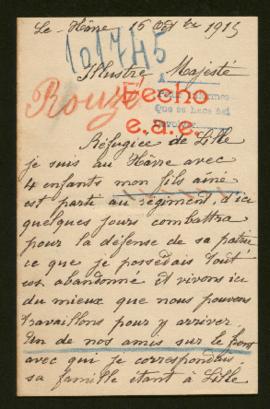 Le Hâvre 16 Oct bre 1915
101745
Illustre Majesté
Rouzé
Fecho
e.a.e.
A
Que se hace
Réfugiée de Lille
je suis au Hâvre avec
4 enfants mon fils ainé
est parti au régiment, d'ici
quelques jours combattra
pour la défense de sa patrie
ce que je possédais tout
est abandonné et vivons ici
du mieux que nous pouvons
travaillons pour y arriver
Un de nos amis sur le front
avec qui je correspondais
sa famille étant à Lille